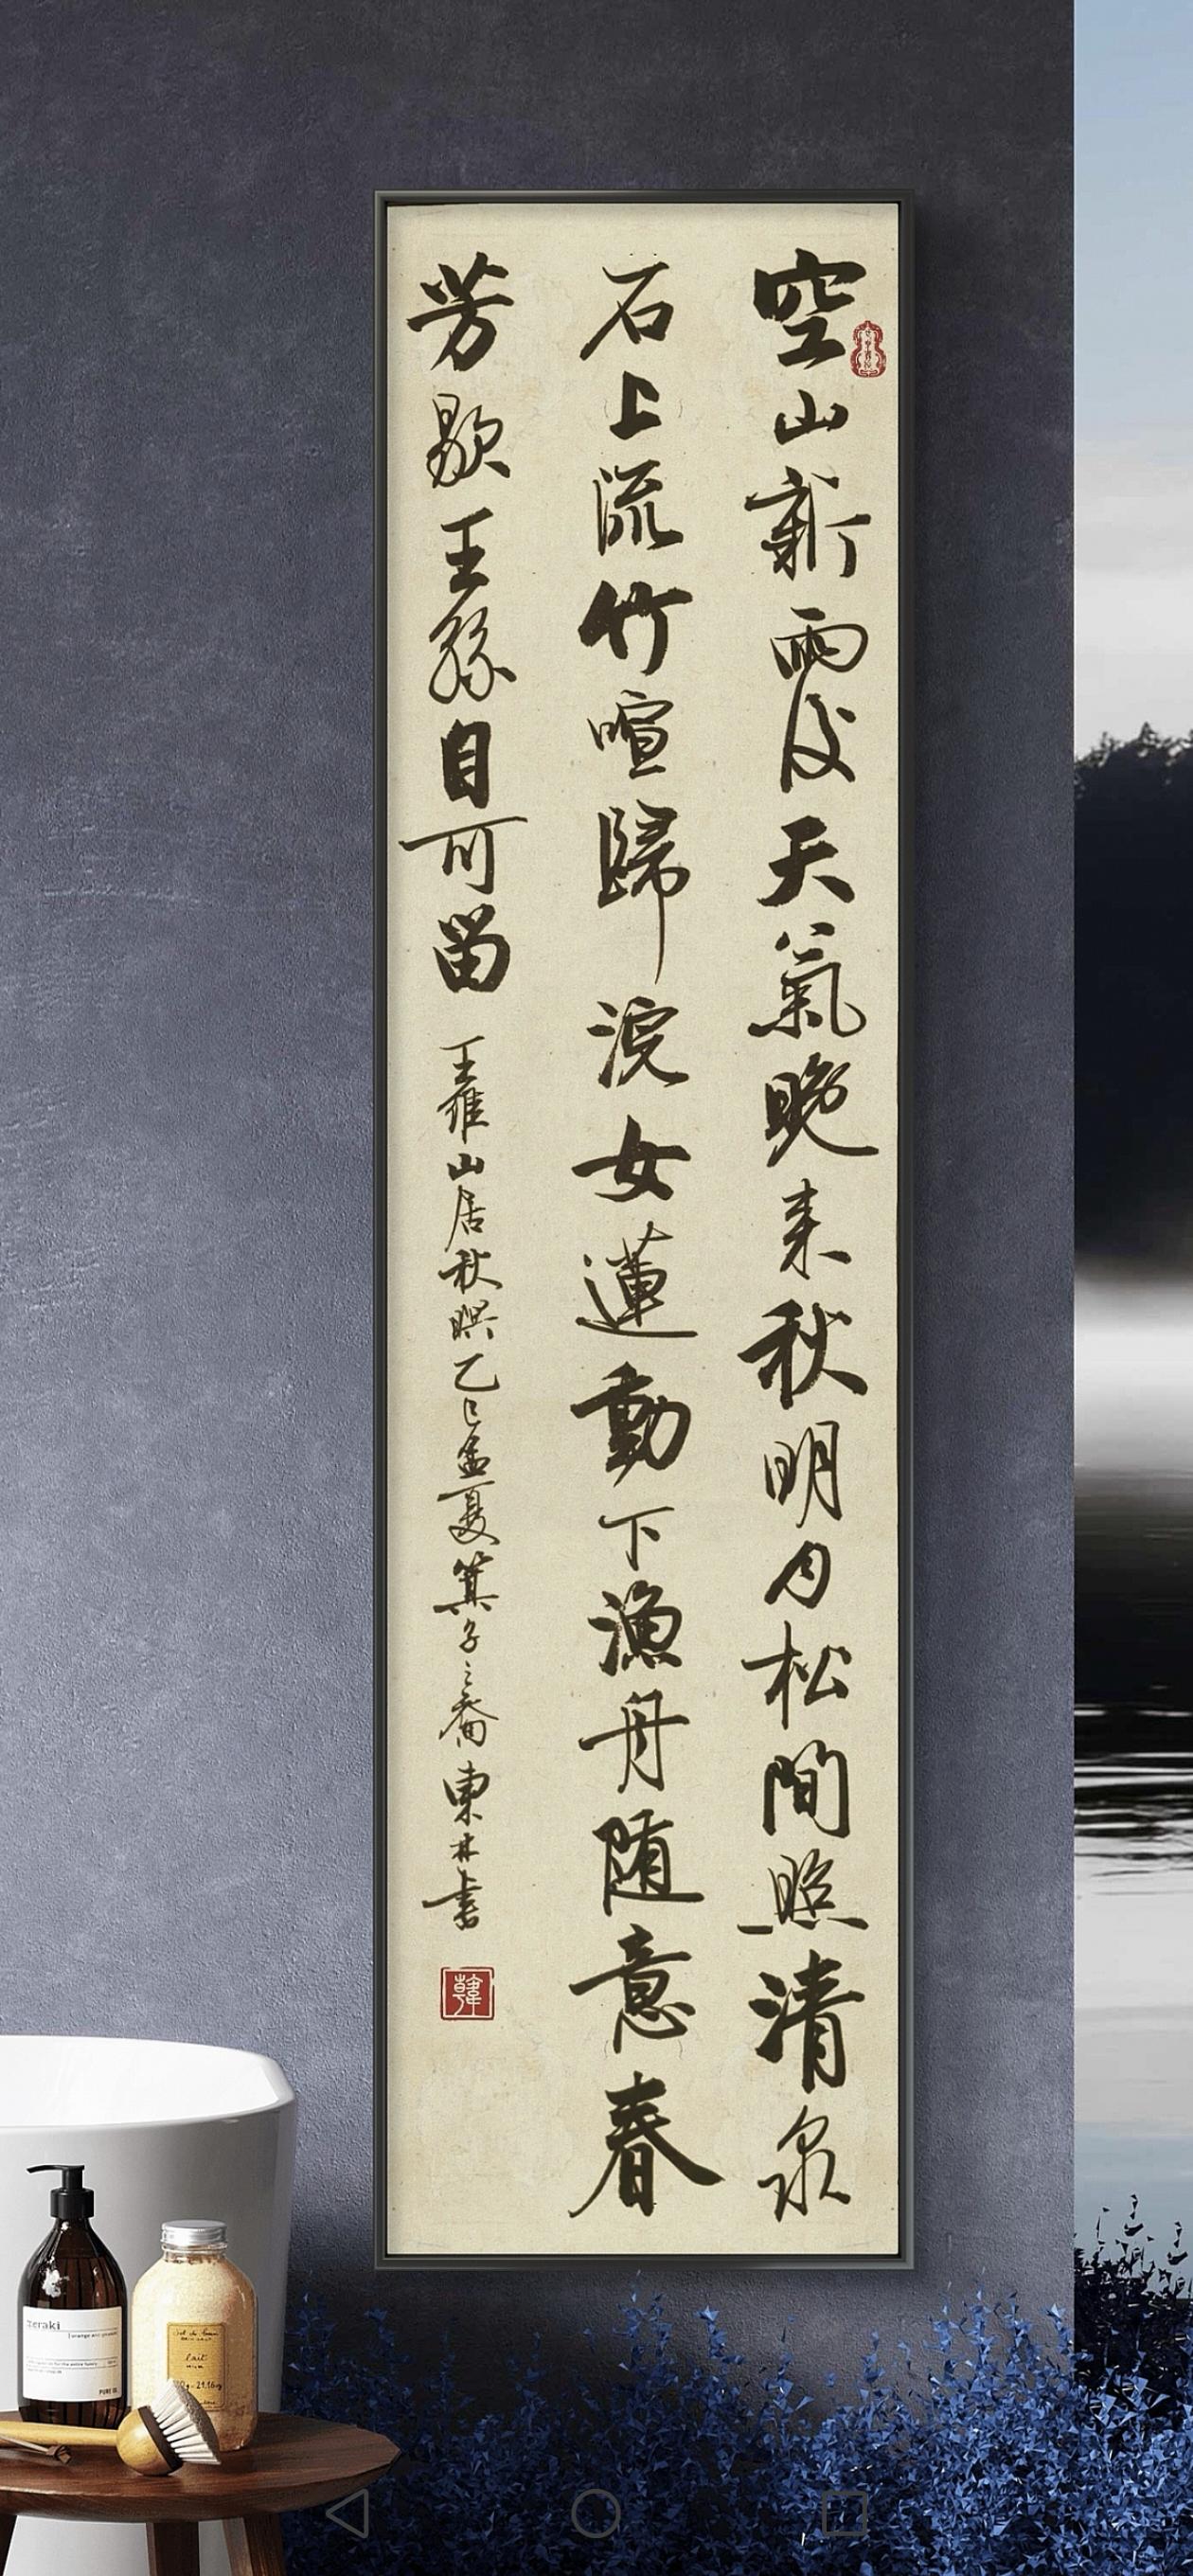 空山新雨後天氣晚来秋明月松間照清泉
石上流竹喧歸浣女蓮動下漁舟随意春
芳歇王孫自可留
王維山居秋暝乙巳孟夏箕子之裔東林書
韓
meraki
lait